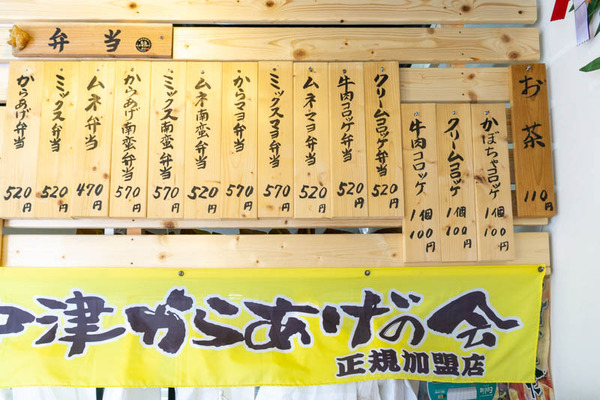 弁当
からあげ弁当 520円
ミックス弁当 520円
ムネ弁当 470円
からあげ南蛮弁当 570円
ミックス南蛮弁当 570円
ムネ南蛮弁当 520円
からマヨ弁当 570円
ミックスマヨ弁当 570円
ムネマヨ弁当 520円
牛肉コロッケ弁当 520円
クリームコロッケ弁当 520円
牛肉コロッケ 1個 100円
クリームコロッケ 1個 100円
かぼちゃコロッケ 1個 100円
お茶 110円
中津からあげの会
正規加盟店